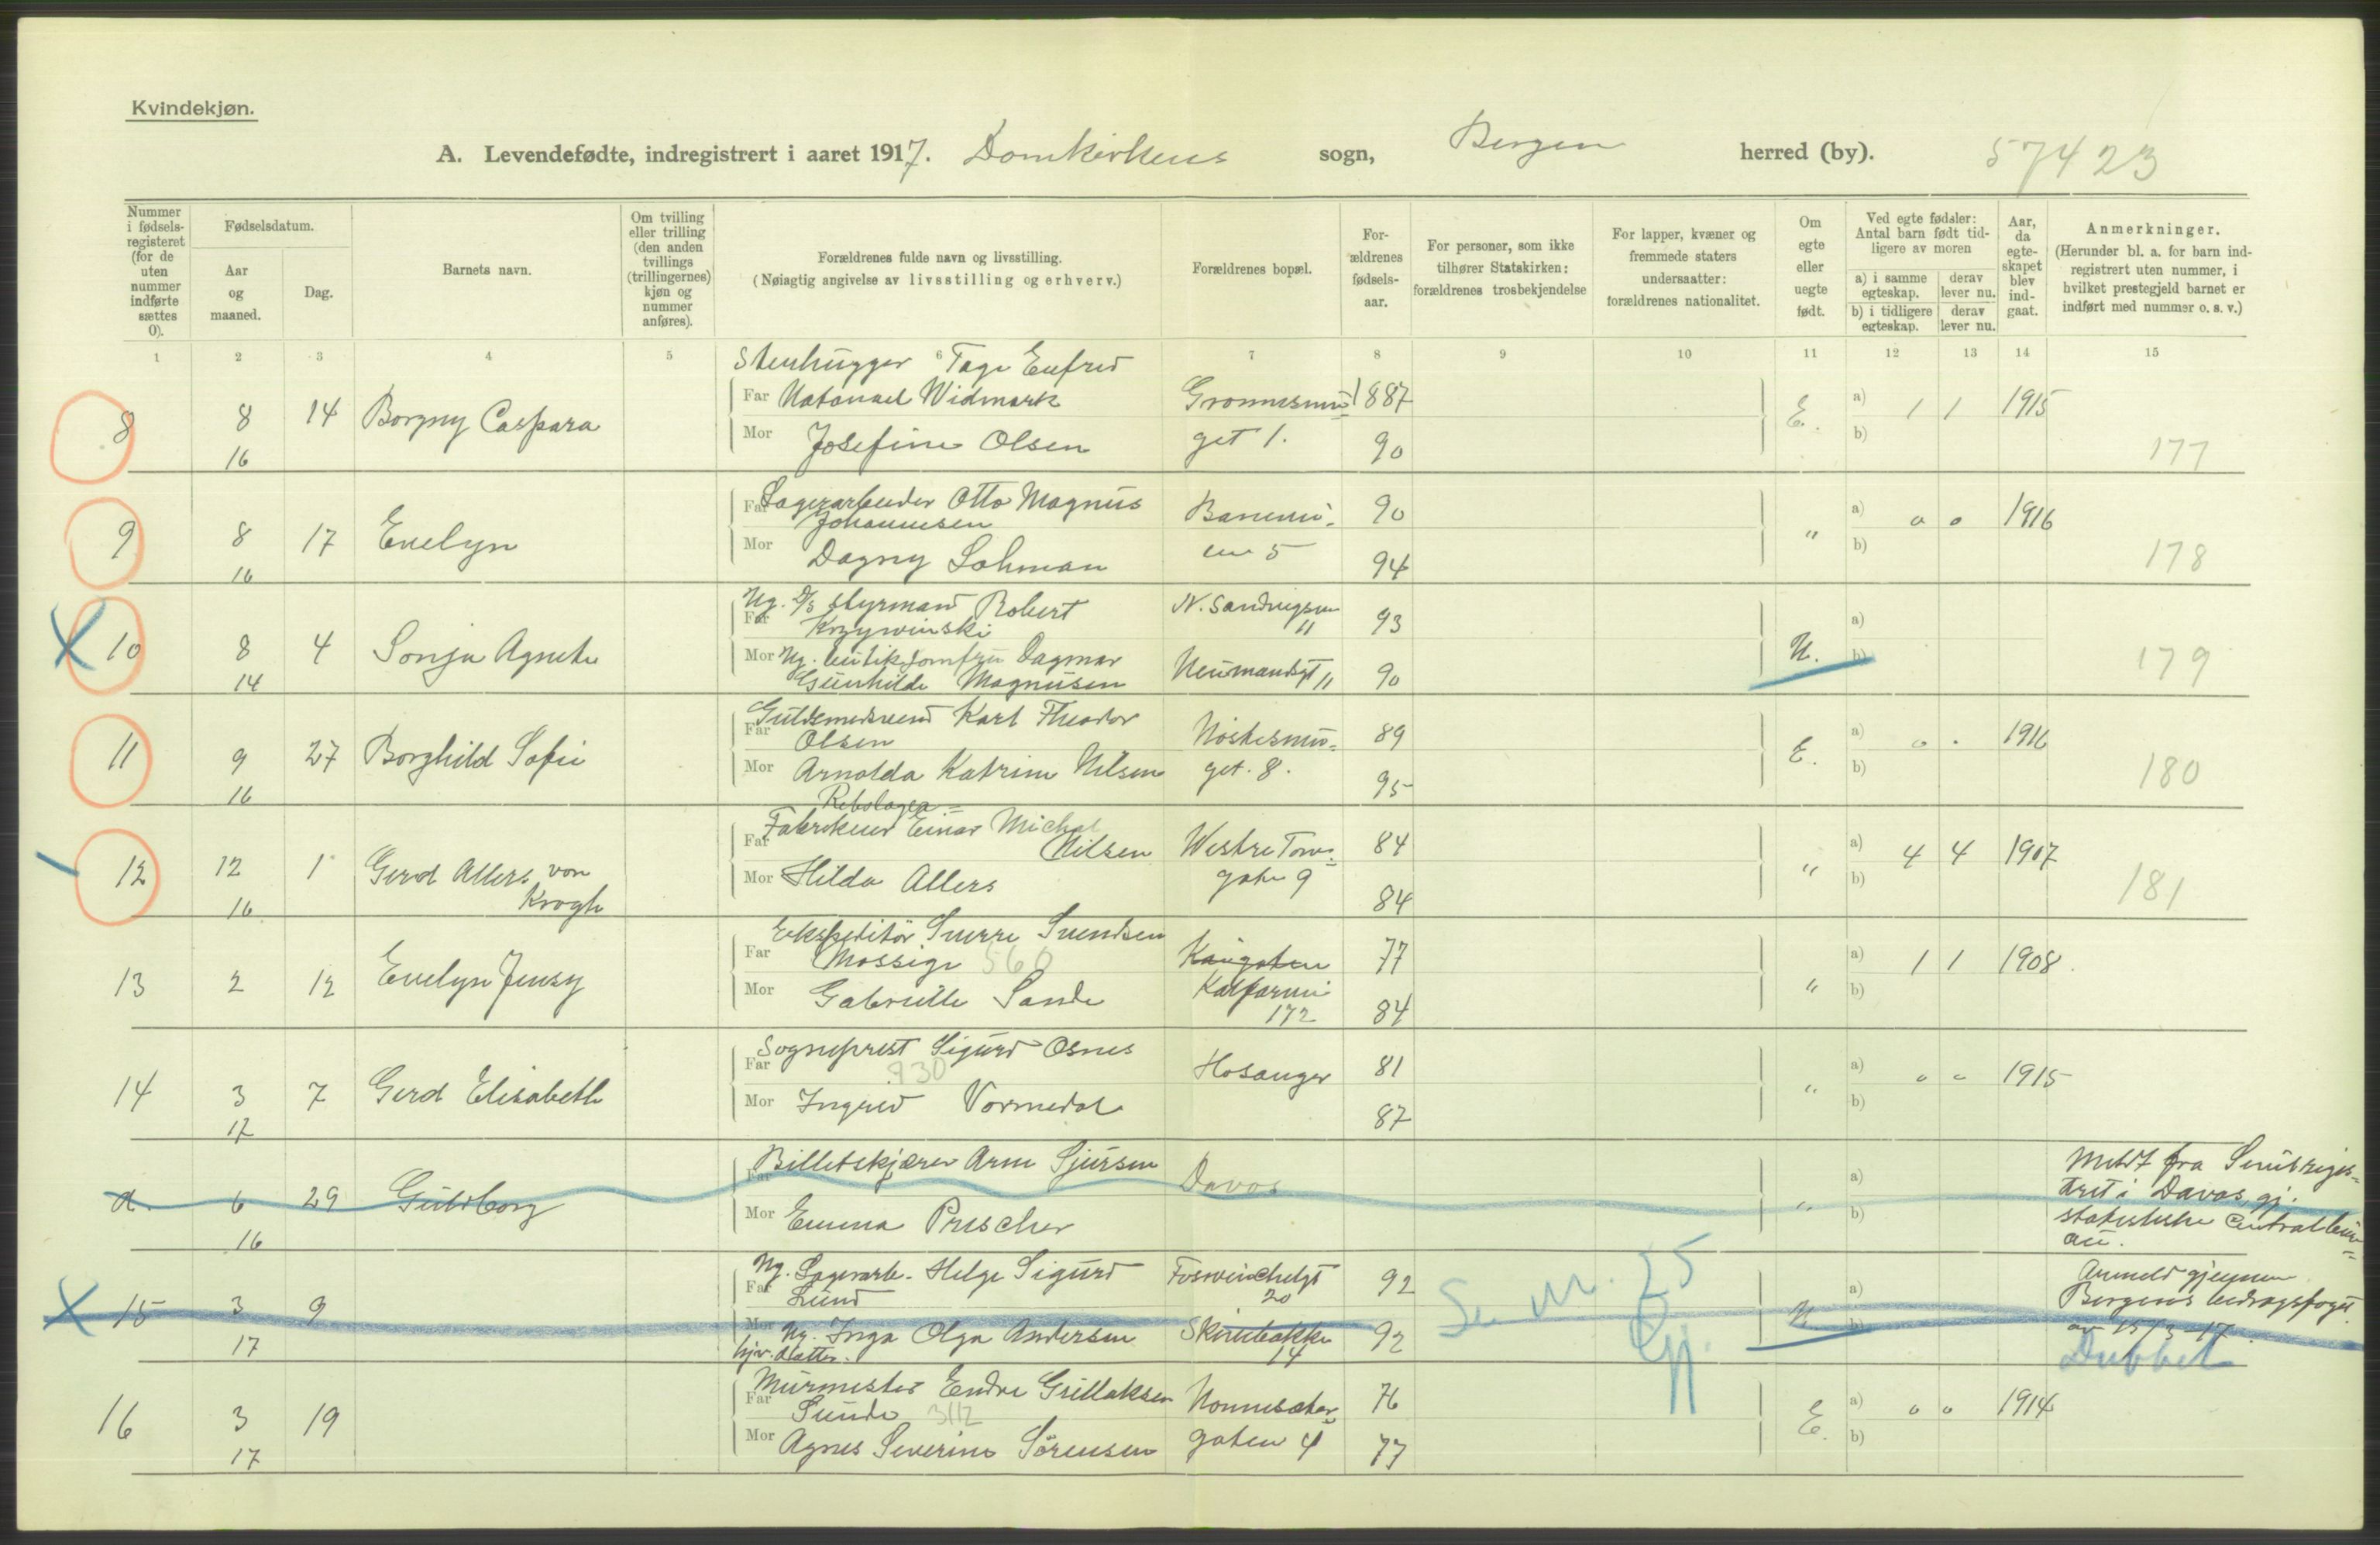 Kvindekjøn.
A. Levendefødte, indregistrert i aaret 1917. Domkirkens sogn, Bergen herred (by). 57423
Nummer i fødsels-registeret (for de uten nummer indførte sættes 0).
Fødselsdatum.
Aar og maaned.
Dag.
Barnets navn.
Om tvilling eller trilling (den anden tvillings (trillingernes) kjøn og nummer anføres).
Forældrenes fulde navn og livsstilling.
(Nøiagtig angivelse av livsstilling og erhverv.)
Forældrenes bopæl.
For-ældrenes fødsels-aar.
For personer, som ikke tilhører Statskirken: forældrenes trosbekjendelse
For lapper, kvæner og fremmede staters undersaatter: forældrenes nationalitet.
Om egte eller uegte født.
Ved egte fødsler: Antal barn født tid-ligere av moren
a) i samme egteskap. derav lever nu.
b) i tidligere egteskap. derav lever nu.
Aar, da egte-skapet blev ind-gaat.
Anmerkninger.
(Herunder bl. a. for barn ind-registrert uten nummer, i hvilket prestegjeld barnet er indført med nummer o. s. v.)
1 2 3 4 5 6 7 8 9 10 11 12 13 14 15
Stenhugger Tage Enfred
8 8 14 Borgny Caspara Far Natanael Widmark 1887 E. a) 1 1 1915
16 Mor Josefine Olsen get 1. 90 b) 177
Far Lagerarbeider Otto Magnus
Johannesen 90 a) 0 0 1916
9 8 17 Evelyn " b)
16 Mor Dagny Lohman 5 94 178
Ug. D/S styrmand Robert N. Sandvigsvn
Far Krzywinski 11 93 a)
10 8 4 Sonja Agnete Mor Ug. butikjomfru Dagmar Neumandsgt 11 U. b) 179
14 Gunhilde Magnusen 90
Guldsmedsvend Karl Theodor
Far Olsen Nøstesmu= 89 a) 0 . 1916
11 9 27 Borghild Sofie E. b)
16 Mor Arnolda Katrine Nilsen get. 8. 95 180
Rebslager=
Far Fabrikeier Einar Michal
Nilsen Westre Torv= 84 a) 4 4 1907
12 12 1 Gerd Allers von " b)
16 Krogh Mor Hilda Allers gate 9 84 181
Ekspeditør Sverre Svendsen
Far Mossige 560 Kaigaten 77 a) 1 1 1908.
13 2 12 Evelyn Jensy Kalfarvei " b)
Mor Gabrielle Sande 172 84
Sogneprest Sigurd Osnes
Far 930 Hosanger 81 a) 0 0 1915
14 3 7 Gerd Elisabeth " b)
17 Mor Ingrid Vormedal 87
Far Billetskjærer Arne Sjursen Davos a) Meldt fra
d. 6 29 Guldborg " b) i Davos gj.
16 Mor Emma Prescher statistiske Centralbur=
au.
Ug. Lagerarb. Helge Sigurd
Far Lund 20 92 Se nr. 25 a) Anmeld gjennem
15 3 9 U b) Bergens bidragsfoget
17 Mor Ug. Inga Olga Andersen Skivebakke 14 92 av 15/3-17.
hjv. datter. Dubbet
Murmester Endre Gullaksen Nonneseter=
Far Sunde 3112 76 a) 0 0 1914
16 3 19 E. b)
17 Mor Agnes Severine Sørensen gaten 4 77